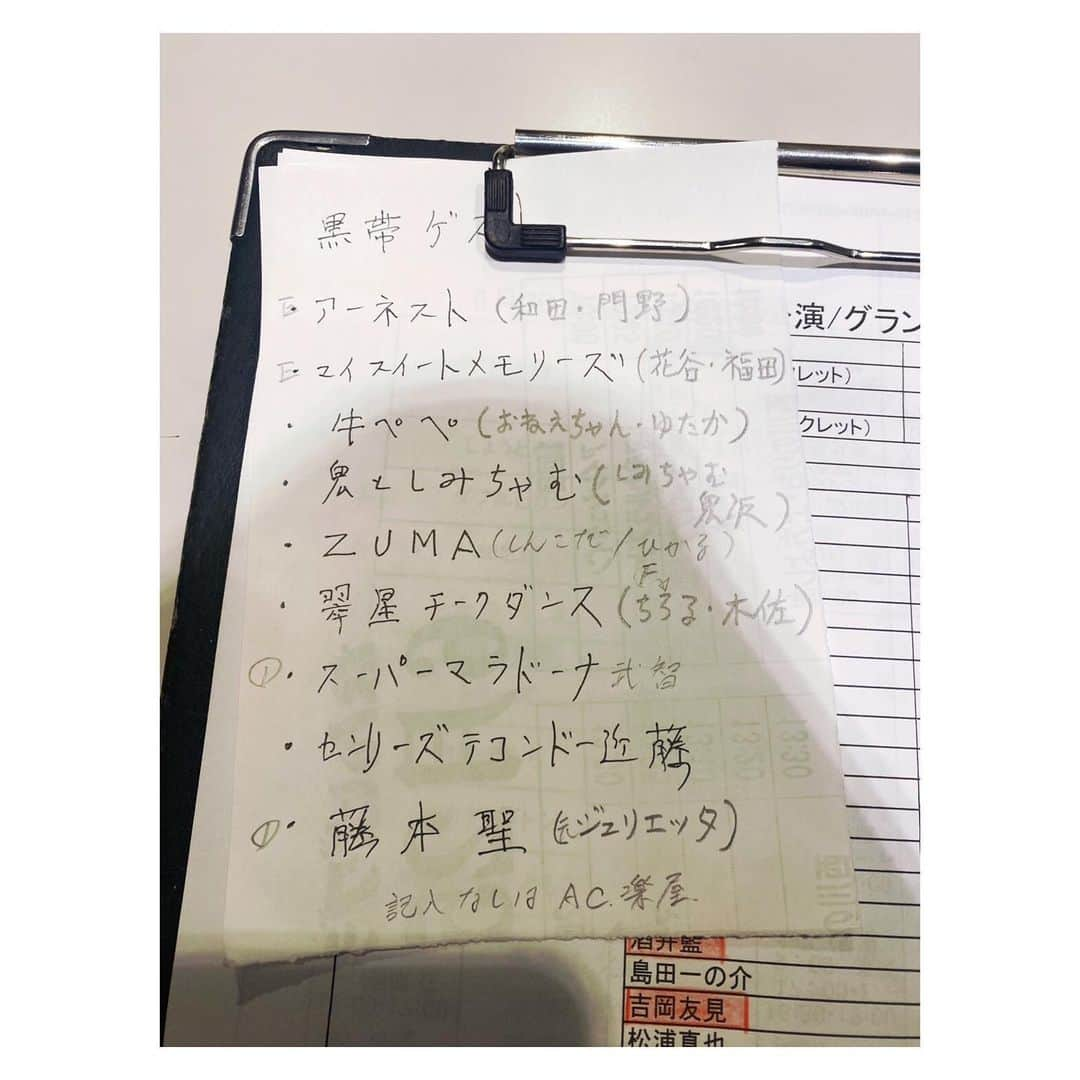 黒帯ゲス
E・アーネスト(和田・門野)
E・マイスイートメモリーズ(花谷・福田)
・牛ペペ(おねえちゃん・ゆたか)
・鬼としみちゃむ(しみちゃむ
鬼浜)
・ZUMA(しんこだ/ひかる)
・翠星チークダンス(ちろる・木佐)
①・スーパーマラドーナ武智
・センリーズテコンドー近藤
①・藤本聖(元ジュリエッタ)
記入なしはAC.楽屋
演/グラン
レット)
クレット)
酒井藍
島田一の介
吉岡友見
松浦真也